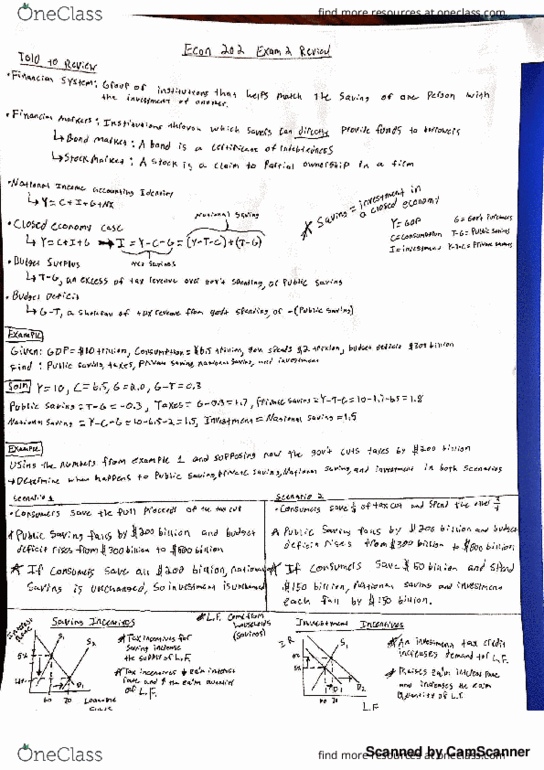 OneClass
find more resources at oneclass.com
Econ 202 Exam 2 Review
Told to Review
•Financial System: Group of institutions that helps match the saving of one person with
the investment of another.
•Financial markets: Institutions through which savers can directly provide funds to borrowers
↳Bond market: A bond is a certificate of indebtedness
↳Stock market: A stock is a claim to partial ownership in a firm
•National Income accounting Identity
↳Y=C+I+G+NX
* Saving = investment in
a closed economy
National Saving
•Closed economy case
↳Y=C+I+G → I=Y-C-G=(Y-T-C)+(T-G)
Y=GDP
C=Consumption T-G=Public Saving
I=investment
•Budget Surplus
↳T-G, an excess of tax revenue over gov't spending, or public saving
•Budget Deficit
↳G-T, a shortfall of tax revenue from gov't spending, or -(Public Saving)
Example
Given: GDP=$10 trillion, Consumption=$6.5 trillion, gov spends $2 trillion, budget deficit $300 billion
Find: Public saving, taxes, private saving, national saving, and investment
Soln Y=10, C=6.5, G=2.0, G-T=0.3
Public Saving=T-G=-0.3, Taxes=G-0.3=1.7, Private Saving=Y-T-C=10-1.7-6.5=1.8
National Saving=Y-C-G=10-6.5-2=1.5, Investment=National saving=1.5
Example
Using the numbers from example 1 and supposing now the gov't cuts taxes by $200 billion
→Determine what happens to Public saving, private saving, national saving, and investment in both scenarios
Scenario 1
•Consumers save the full proceeds of the tax cut
* Public Saving falls by $200 billion and budget
deficit rises from $300 billion to $500 billion
* If Consumers save all $200 billion, national
Saving is unchanged, so investment is unchanged
Scenario 2
•Consumers save 1/4 of tax cut and spend the other 3/4
* Public Saving falls by $200 billion and budget
deficit rises from $300 billion to $500 billion
* If Consumers save $50 billion and spend
$150 billion, national saving and investment
each fall by $150 billion.
Saving Incentives
* L.F. come from
households
(savings)
S₁
S₂
5%
4%
D₁
60 70
Loanable
* Tax incentives for
saving increase
the supply of L.F.
* Tax incentives ↓ eq'm interest
rate and ↑ the eq'm quantity
of L.F.
Investment Incentives
I R
S₁
D₁
D₂
60 70
L.F
* An investment tax credit
increases demand for L.F.
* Raises eq'm interest rate
and increases the eq'm
Quantity of L.F.
Scanned by CamScanner
OneClass
find more resources at oneclass.com